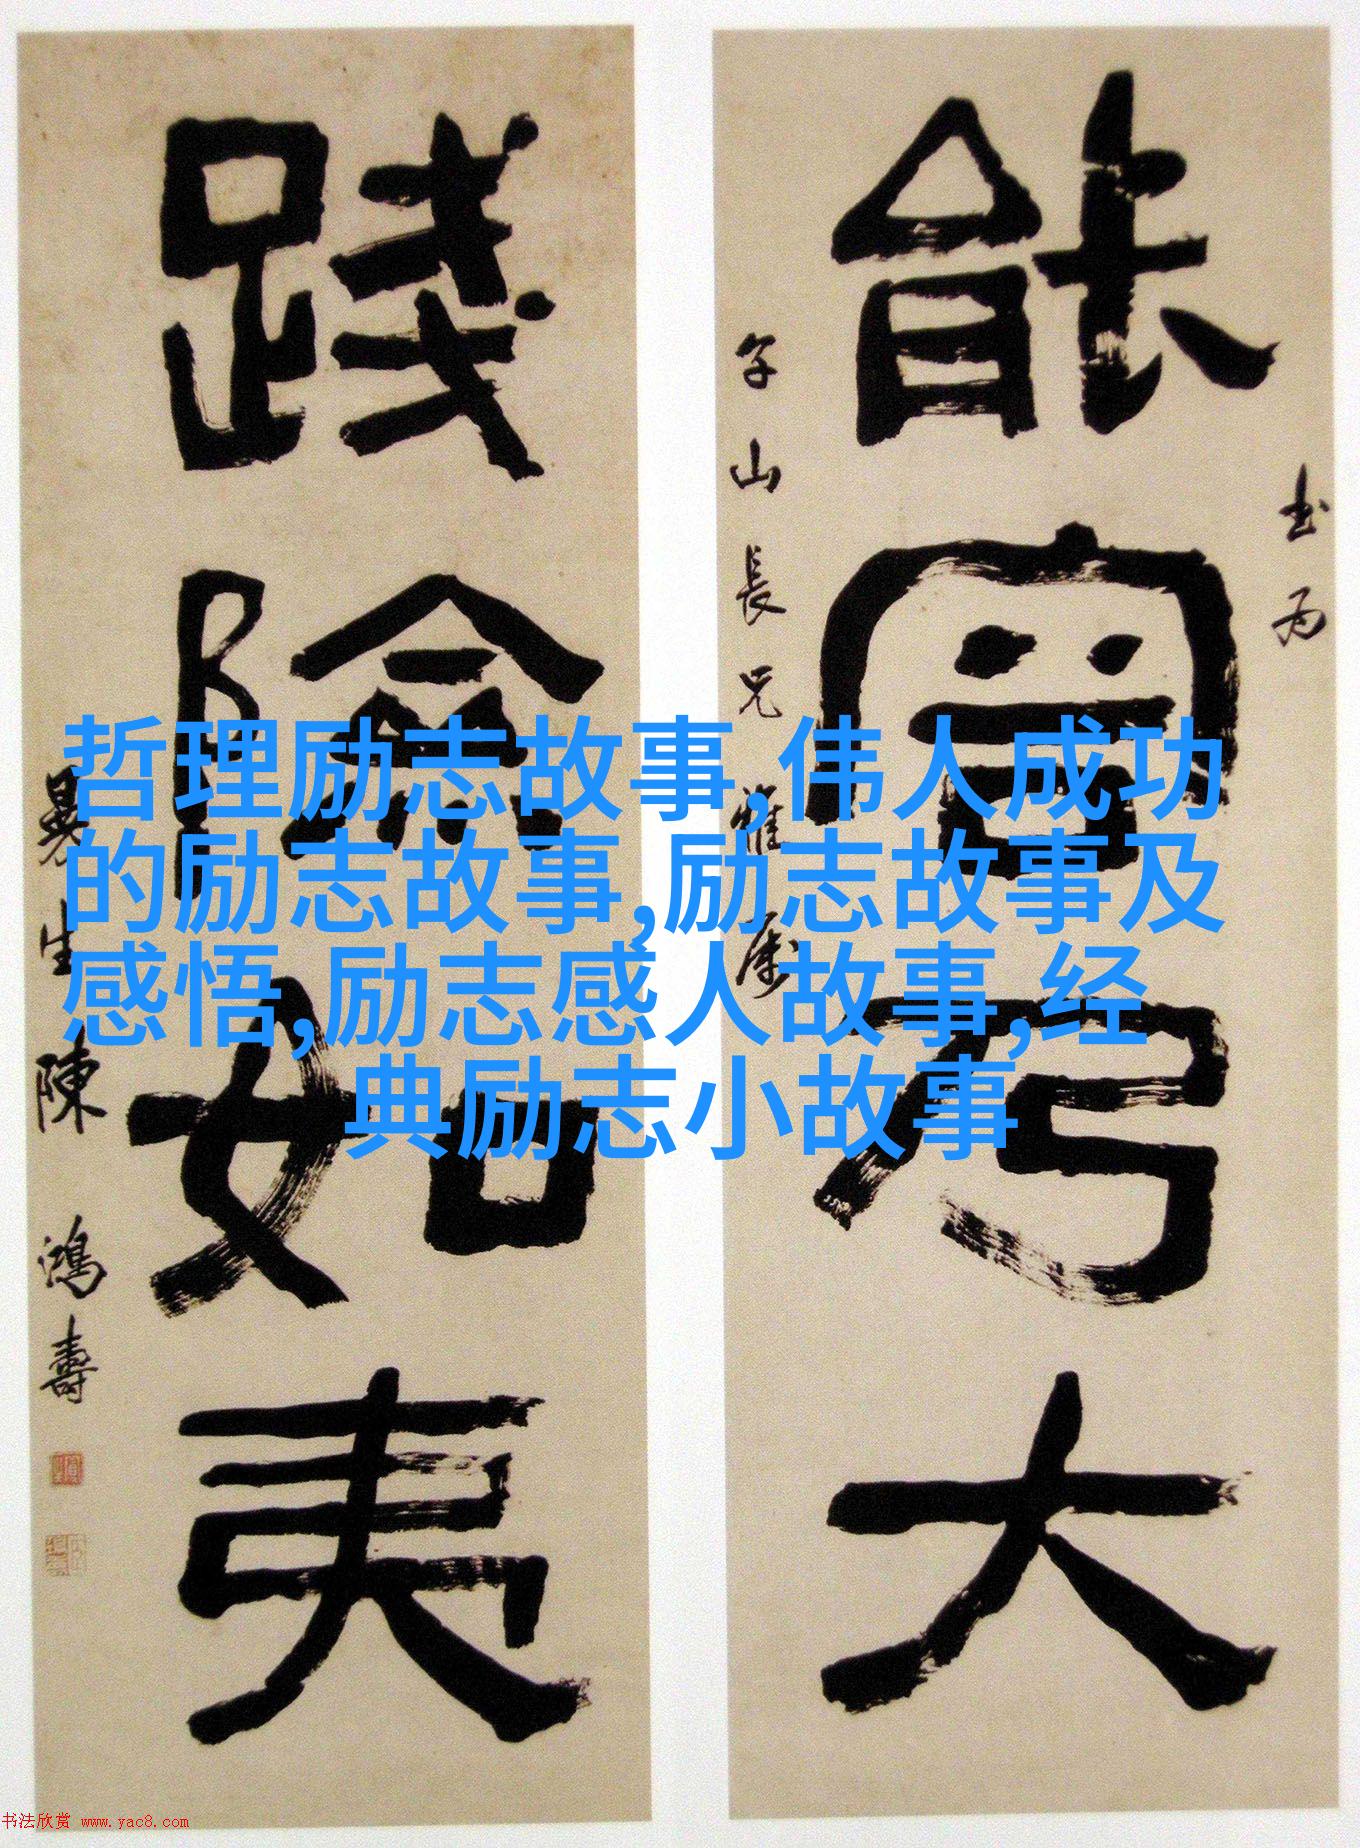 能容乃大
书为
午山長兄雅属
踐險如夷
曼生陳鴻壽
哲理励志故事,伟人成功
的励志故事,励志故事及
感悟,励志感人故事,经
典励志小故事
书法欣赏 www.yac8.com